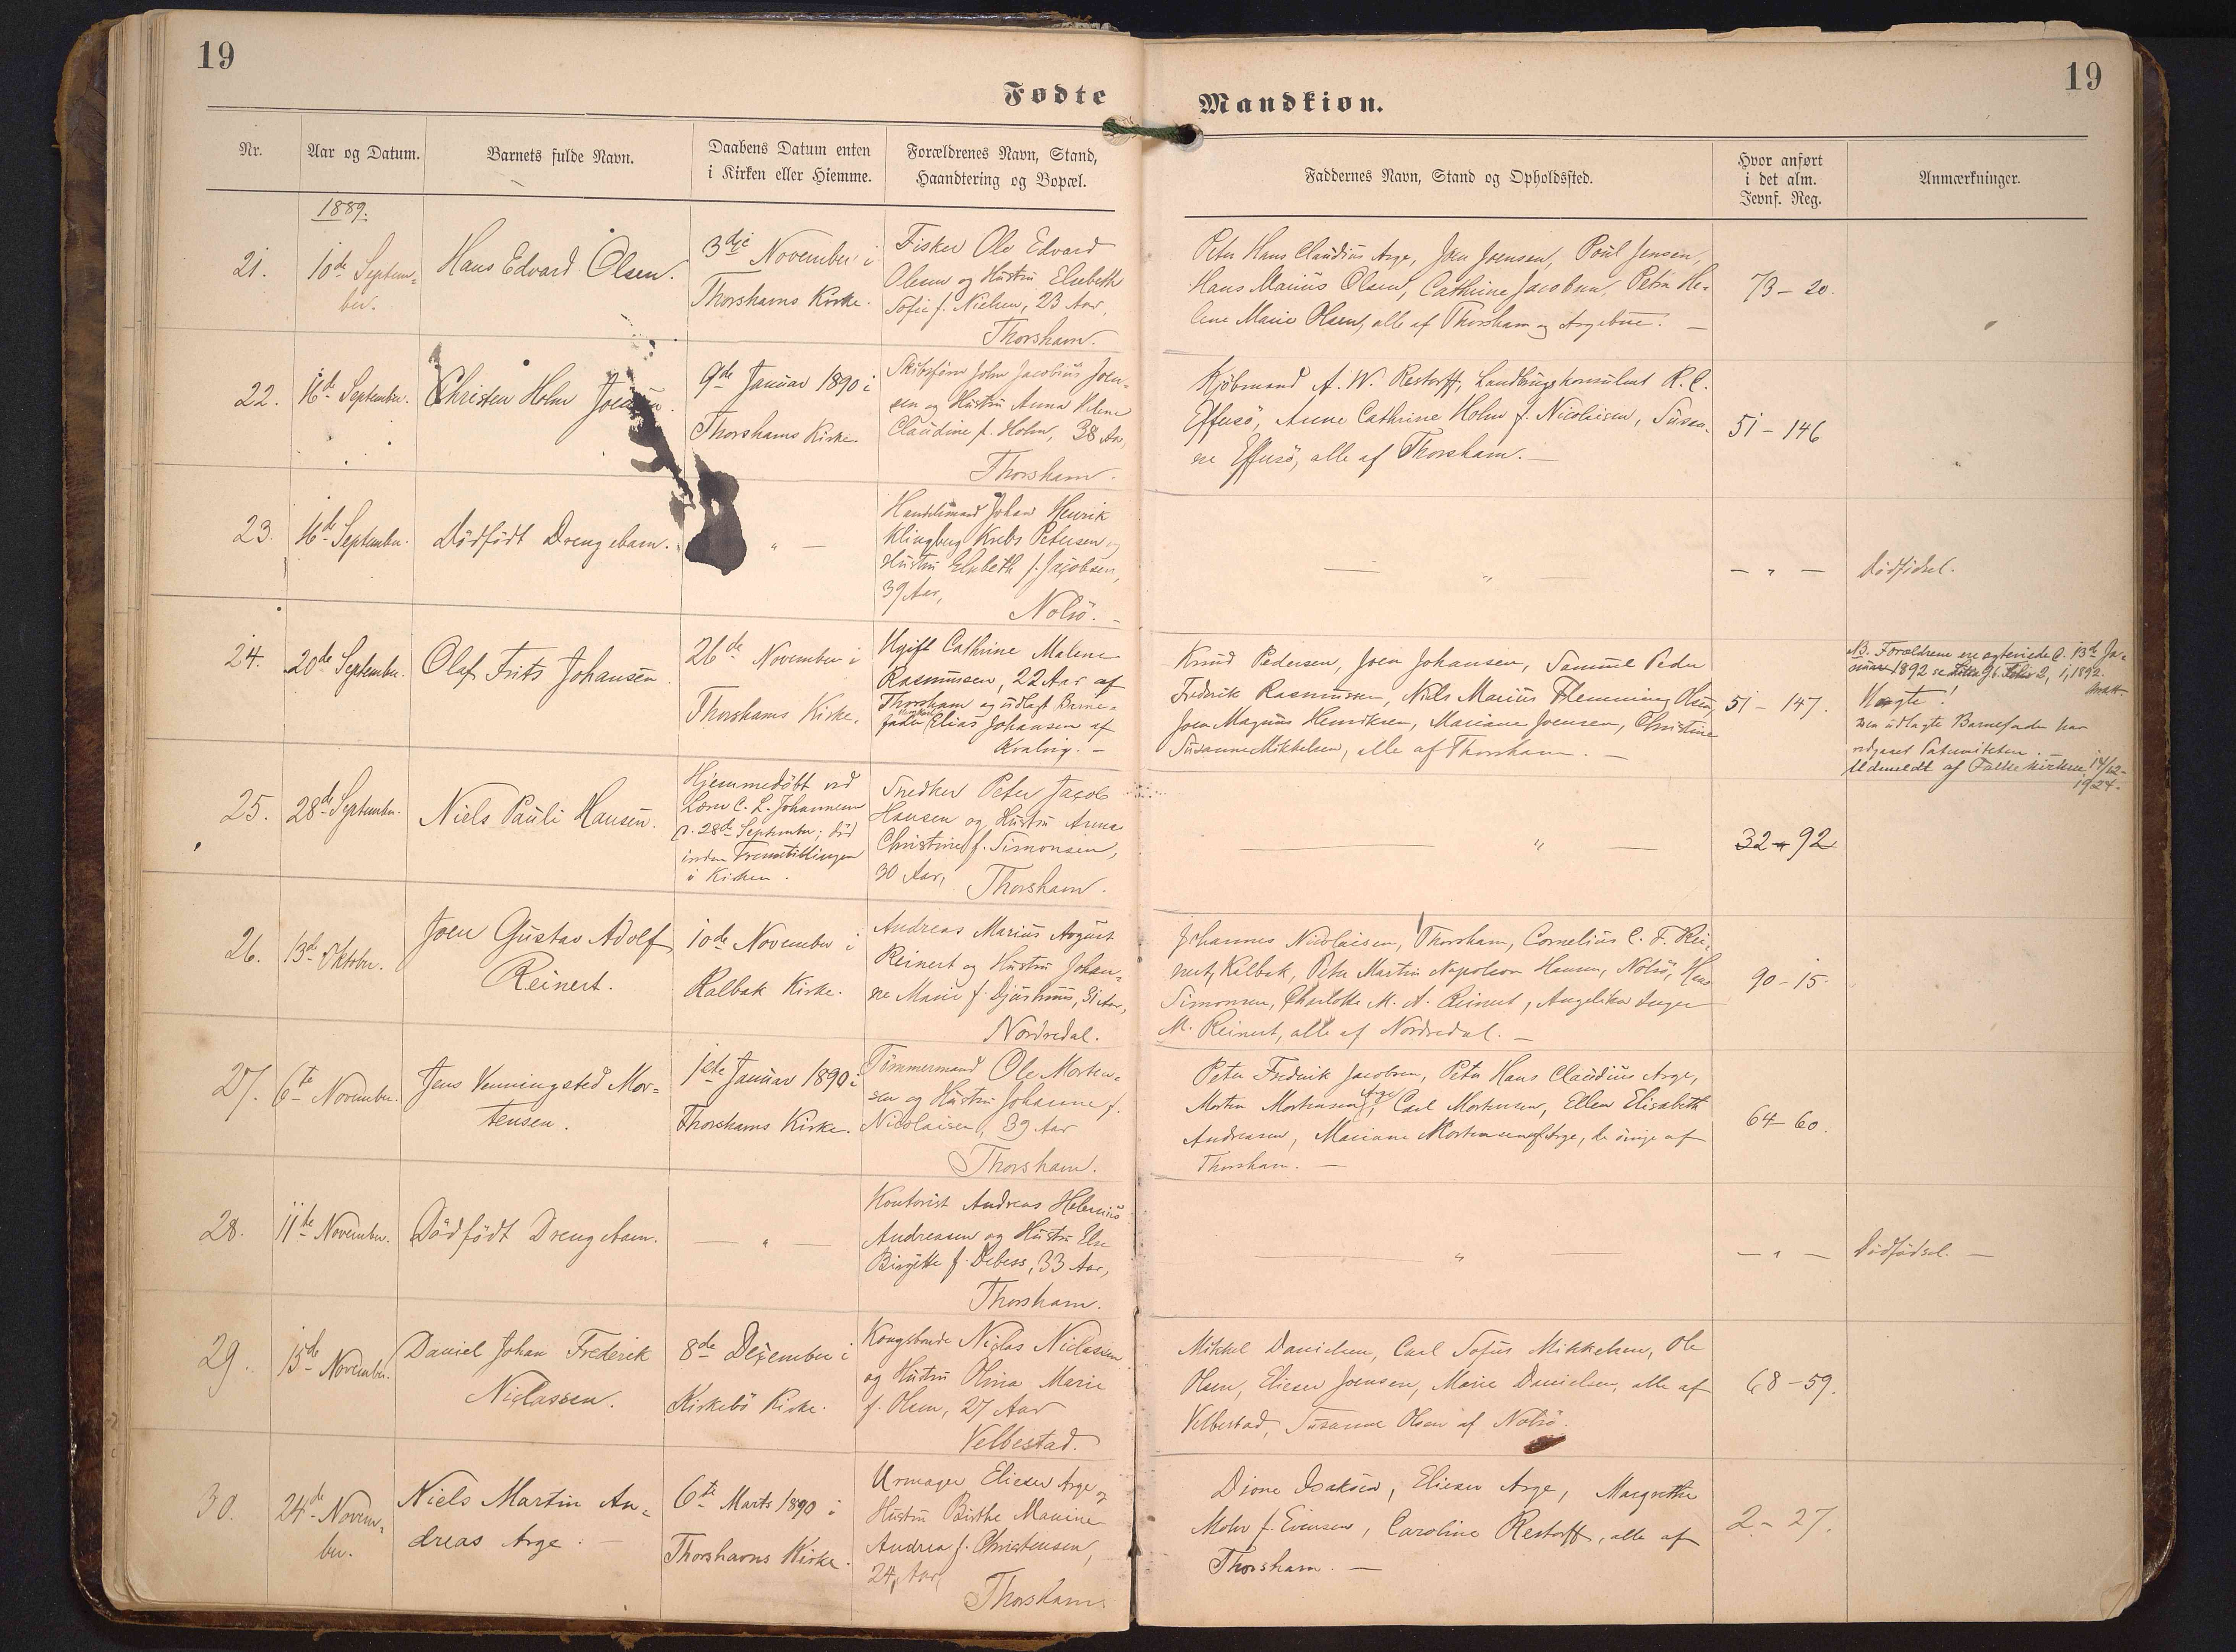 19
19
Fødte
Mandkiøn.
Nr.
Aar og Datum.
Barnets fulde Navn.
Daabens Datum enten
i Kirken eller Hiemme.
Forældrenes Navn, Stand,
Haandtering og Bopæl.
Faddernes Navn, Stand og Opholdssted.
Hvor anført
i det alm.
Jevnf. Reg.
Anmærkninger.
1889.
21.
10de Septem-
ber.
Hans Edvard Olsen.
3die November i
Thorshavns Kirke.
Fisker Ole Edvard
Olsen og Hustru Elsebeth
Sofie f. Nielsen, 23 Aar,
Thorshavn.
Peter Hans Claudius Arge, Joen Joensen, Poul Jensen,
Hans Marius Olsen, Cathrine Jacobsen, Petra He-
lene Marie Olsen, alle af Thorshavn og Argebøe. —
73 – 20.
22.
16de September.
Christen Holm Joensen.
9de Januar 1890 i
Thorshavns Kirke.
Skibsfører John Jacobius Joen-
sen og Hustru Anna Helene
Claudine f. Holm, 38 Aar,
Thorshavn.
Kjøbmand A. W. Restorff, Landbrugskonsulent R. C.
Effersø, Anne Cathrine Holm f. Nicolaisen, Susan-
ne Effersø, alle af Thorshavn. —
51 – 146
23.
16de September.
Dødfødt Drengebarn.
" —
Handelsmand Johan Henrik
Klingberg Krebs Petersen og
Hustru Elsebeth f. Jacobsen,
39 Aar,
Nolsø. –
— " —
— " —
Dødfødsel.
24.
20de September.
Olaf Frits Johansen
26de November i
Thorshavns Kirke.
Ugift Cathrine Malene
Rasmussen, 22 Aar af
Thorshavn og udlagt Barne-
fader Elias Johansen af
Kvalvig. –
Knud Pedersen, Joen Johansen, Samuel Peder
Fredrik Rasmussen, Niels Marius Flemming Olsen,
Joen Magnus Henriksen, Mariane Joensen, Christine
Susanne Mikkelsen, alle af Thorshavn. —
51 – 147.
NB. Forældrene ere ægteviede d. 13de Ja-
nuar 1892
Uægte!
Den udlagte Barnefader har
vedgaaet Paterniteten. —
Udmeldt af Folkekirken 14/12 -
1924.
25.
28de September.
Niels Pauli Hansen.
Hjemmedøbt ved
Lærer C. L. Johannesen
d. 28de September; død
inden Fremstillingen
i Kirken.
Snedker Peter Jacob
Hansen og Hustru Anna
Christine f. Simonsen,
30 Aar, Thorshavn.
— " —
32 – 92
26.
13de Oktober.
Joen Gustav Adolf
Reinert.
10de November i
Kalbak Kirke.
Andreas Marius August
Reinert og Hustru Johan-
ne Marie f. Djurhuus, 31 Aar,
Nordredal.
Johannes Nicolaisen, Thorshavn, Cornelius C. F. Rei-
nert, Kalbak, Peter Martin Napoleon Hansen, Nolsø, Hans
Simonsen, Charlotte M. A. Reinert, Angelika Inger
M. Reinert, alle af Nordredal. —
90 – 15.
27.
6te November.
Jens Venningsted Mor-
tensen.
1ste Januar 1890 i
Thorshavns Kirke.
Tømmermand Ole Morten-
sen og Hustru Johanne f.
Nicolaisen, 39 Aar
Thorshavn.
Peter Fredrik Jacobsen, Peter Hans Claudius Arge,
Morten Mortensen, Arge, Carl Mortensen, Ellen Elisabeth
Andreasen, Mariane Mortensen af Arge, de øvrige af
Thorshavn. —
64 – 60.
28.
11te November.
Dødfødt Drengebarn.
— " —
Kontorist Andreas Helenius
Andreasen og Hustru Else
Birgitte f. Debess, 33 Aar,
Thorshavn.
— " —
— " —
Dødfødsel. —
29.
15de November.
Daniel Johan Frederik
Niclassen.
8de Dezember i
Kirkebø Kirke.
Kongsbonde Niclas Niclassen
og Hustru Olina Marie
f. Olsen, 27 Aar
Velbestad.
Mikkel Danielsen, Carl Sofus Mikkelsen, Ole
Olsen, Elieser Joensen, Marie Danielsen, alle af
Velbestad, Susanne Olsen af Nolsø.
68 – 59.
30.
24de Novem-
ber.
Niels Martin An-
dreas Arge. –
6te Marts 1890 i
Thorshavns Kirke.
Urmager Elieser Arge og
Hustru Birthe Maurine
Andrea f. Christensen,
24 Aar,
Thorshavn.
Dione Isaksen, Elieser Arge, Margrethe
Mohr f. Evensen, Caroline Restorff, alle af
Thorshavn. —
2 – 27.